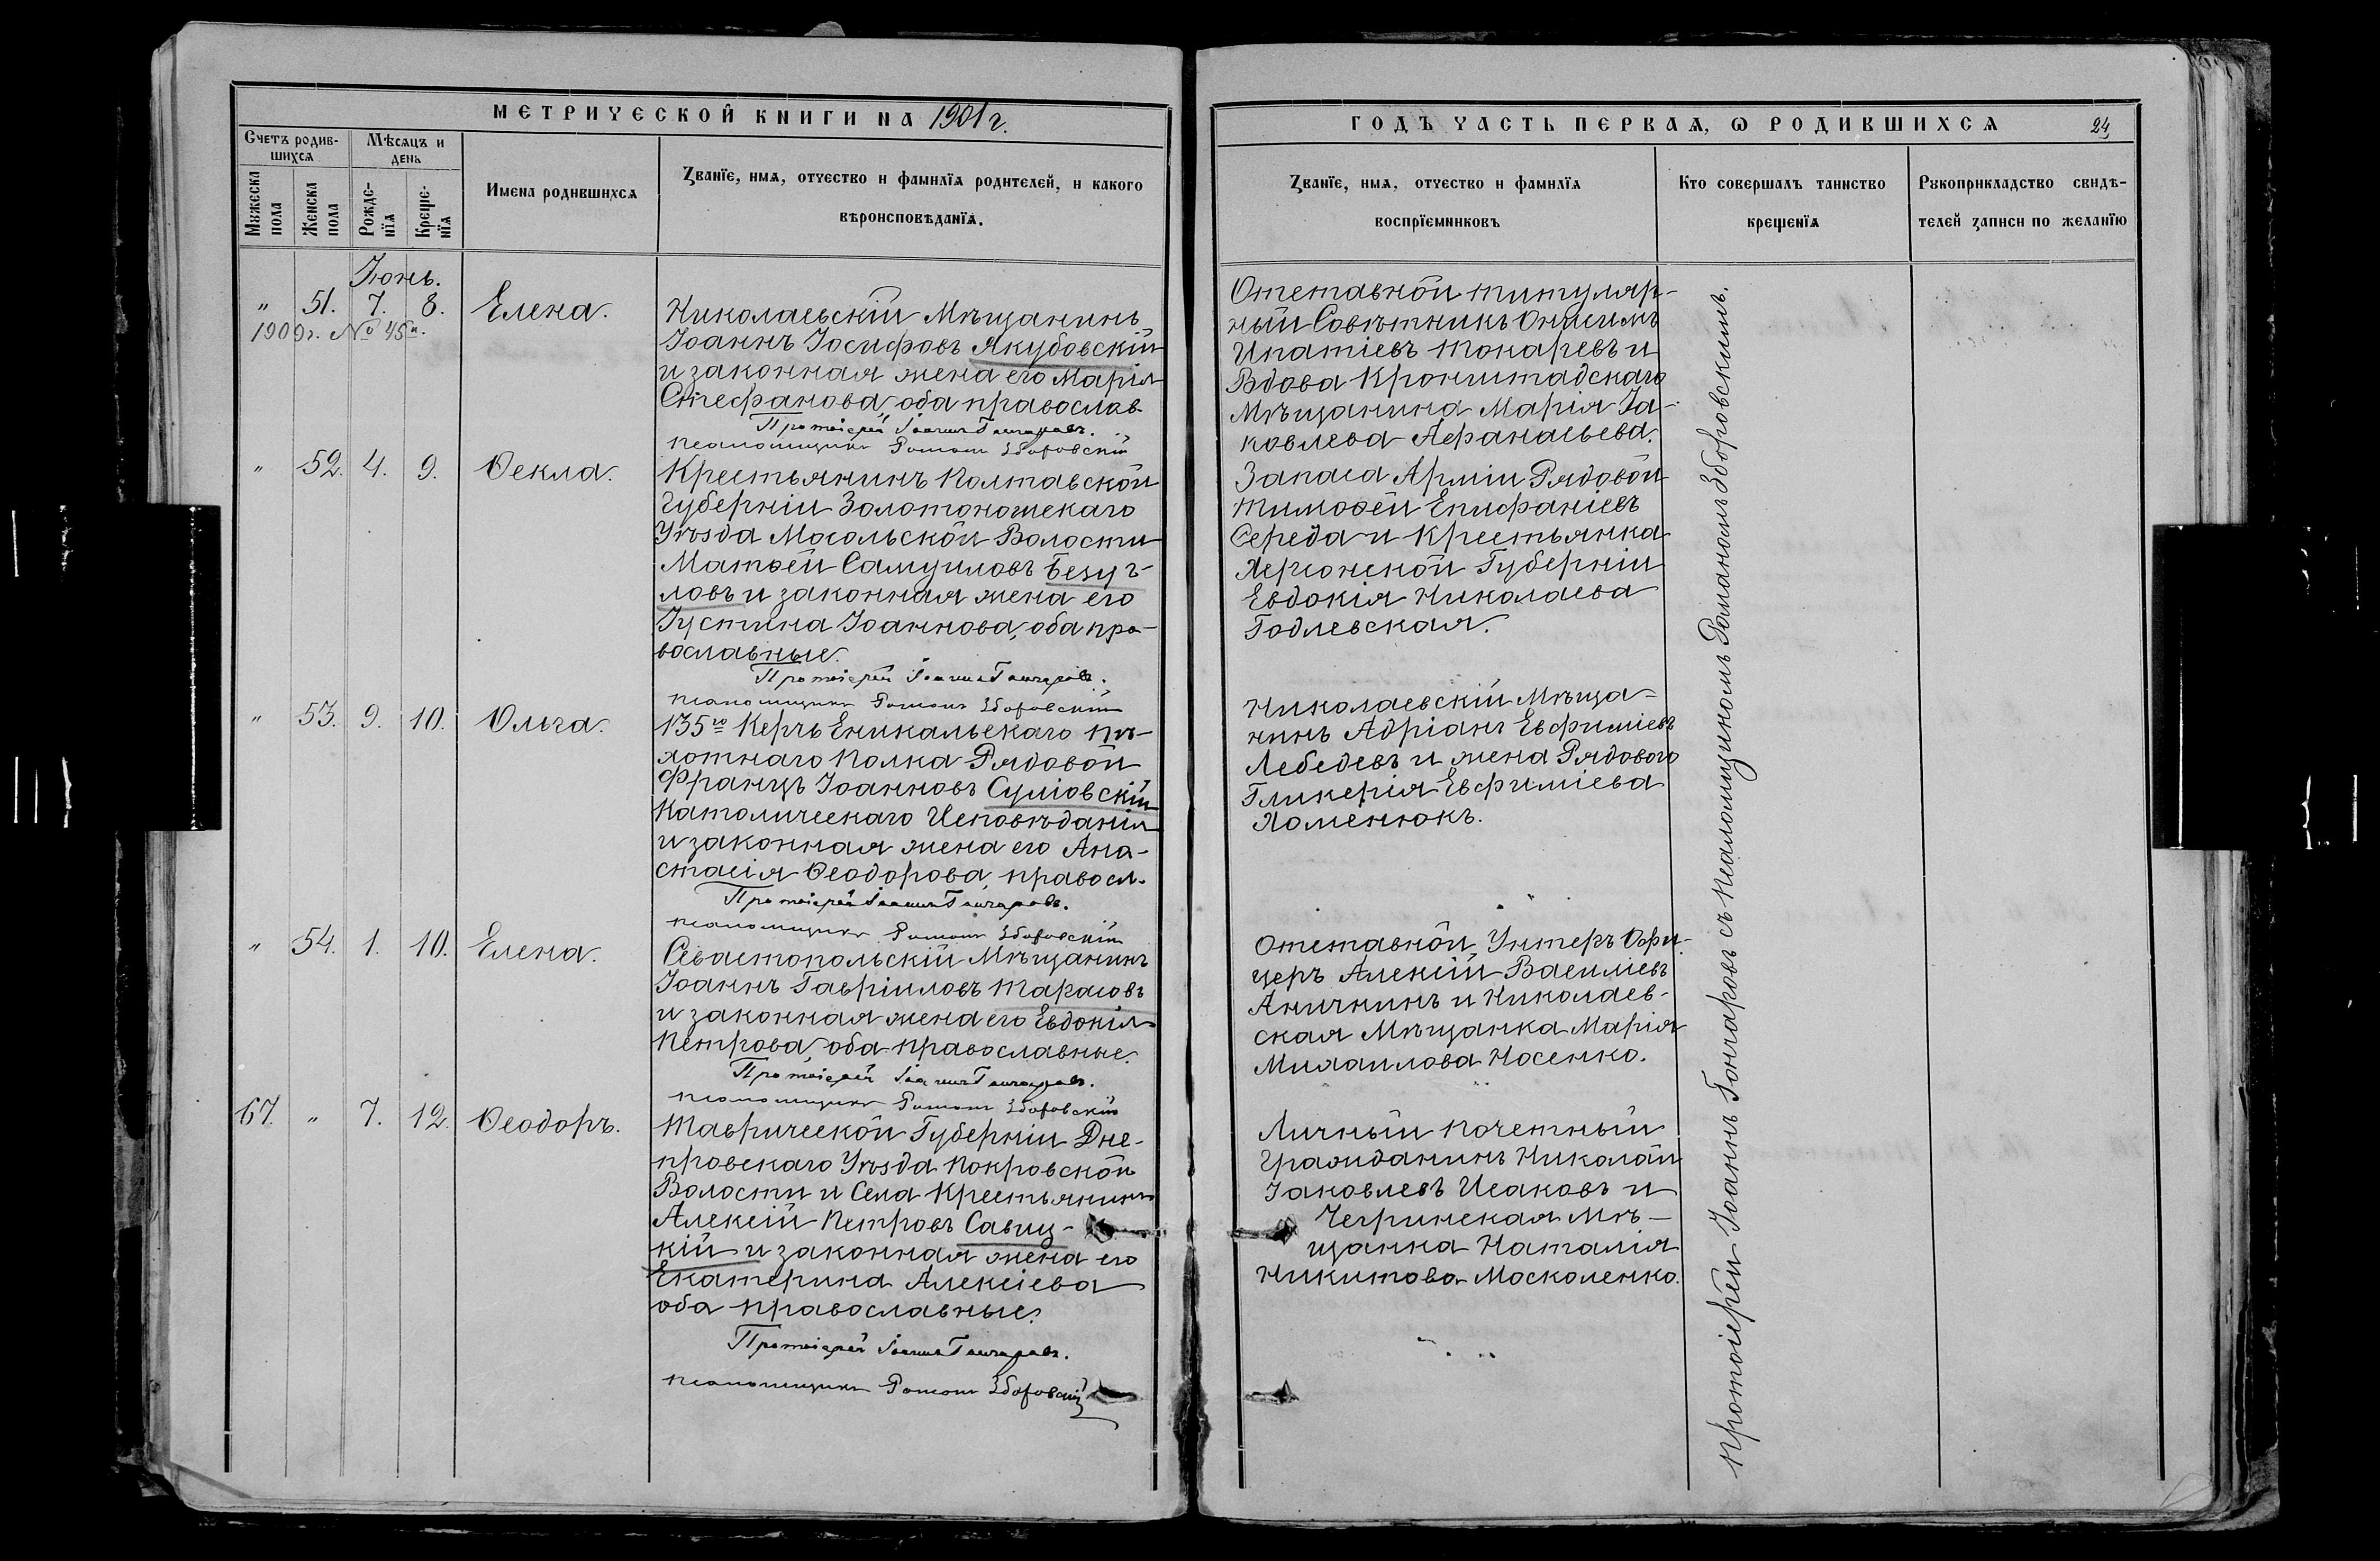 МЕТРИЧЕСКОЙ КНИГИ НА 1901 г.
Счетъ родив-
шихся
Мѣсяцъ и
день
Мужеска
пола
Женска
пола
Рожде-
нїя
Креще-
нїя
Имена родившихся
Званїе, имя, отчество и фамилїя родителей, и какого
вѣроисповѣданїя.
Іюнь.
" 51. 7. 8. Елена.
1909г. № 45
Николаевскій Мѣщанинъ
Іоаннъ Іосифовъ Якубовскій
и законная жена его Марія
Стефанова, оба православ.
Протоіерей Іоаннъ Гончаровъ.
Псаломщикъ Романъ Зборовскій
" 52. 4. 9. Ѳекла.
Крестьянинъ Полтавской
Губерніи Золотоношскаго
Уѣзда Мосольской Волости
Матѳей Самуиловъ Безуг-
ловъ и законная жена его
Іустина Іоаннова, оба пра-
вославные.
Протоіерей Іоаннъ Гончаровъ.
Псаломщикъ Романъ Зборовскій
" 53. 9. 10. Ольга.
135го Керчь Еникальскаго Пѣ-
хотнаго Полка Рядовой
Францъ Іоанновъ Суліовскій
Католическаго Исповѣданія
и законная жена его Ана-
стасія Ѳеодорова, правосл.
Протоіерей Іоаннъ Гончаровъ.
Псаломщикъ Романъ Зборовскій
" 54. 1. 10. Елена.
Севастопольскій Мѣщанинъ
Іоаннъ Гавріиловъ Тарасовъ
и законная жена его Евдокія
Петрова, оба православные.
Протоіерей Іоаннъ Гончаровъ.
Псаломщикъ Романъ Зборовскій
67. " 7. 12. Ѳеодоръ.
Таврической Губерніи Дне-
провскаго Уѣзда Покровской
Волости и Села Крестьянинъ
Алексій Петровъ Савиц-
кій и законная жена его
Екатерина Алексіева
оба православные.
Протоіерей Іоаннъ Гончаровъ.
Псаломщикъ Романъ Зборовскій
ГОДЪ ЧАСТЬ ПЕРВАЯ, Ѡ РОДИВШИХСЯ
24
Званїе, имя, отчество и фамилїя
воспрїемниковъ
Кто совершалъ таинство
крещенїя
Рукоприкладство свидѣ-
телей записи по желанїю
Отставной титуляр-
ный Совѣтникъ Онисимъ
Ипатіевъ Токаревъ и
Вдова Кронштадскаго
Мѣщанина Марія Іа-
ковлева Афанасьева.
Запаса Арміи Рядовой
Тимоѳей Епифаніевъ
Середа и Крестьянка
Херсонской Губерніи
Евдокія Николаева
Годлевская.
Николаевскій Мѣща-
нинъ Адріанъ Евфиміевъ
Лебедевъ и жена Рядового
Гликерія Евфиміева
Хоменюкъ.
Отставной Унтеръ Офи-
церъ Алексій Василіевъ
Аничкинъ и Николаев-
ская Мѣщанка Марія
Михаилова Носенко.
Личный Почетный
Гражданинъ Николай
Іаковлевъ Исаковъ и
Чегринская Мѣ-
щанка Наталія
Никитова Москаленко.
Протоіерей Іоаннъ Гончаровъ съ Псаломщикомъ Романомъ Зборовскимъ.